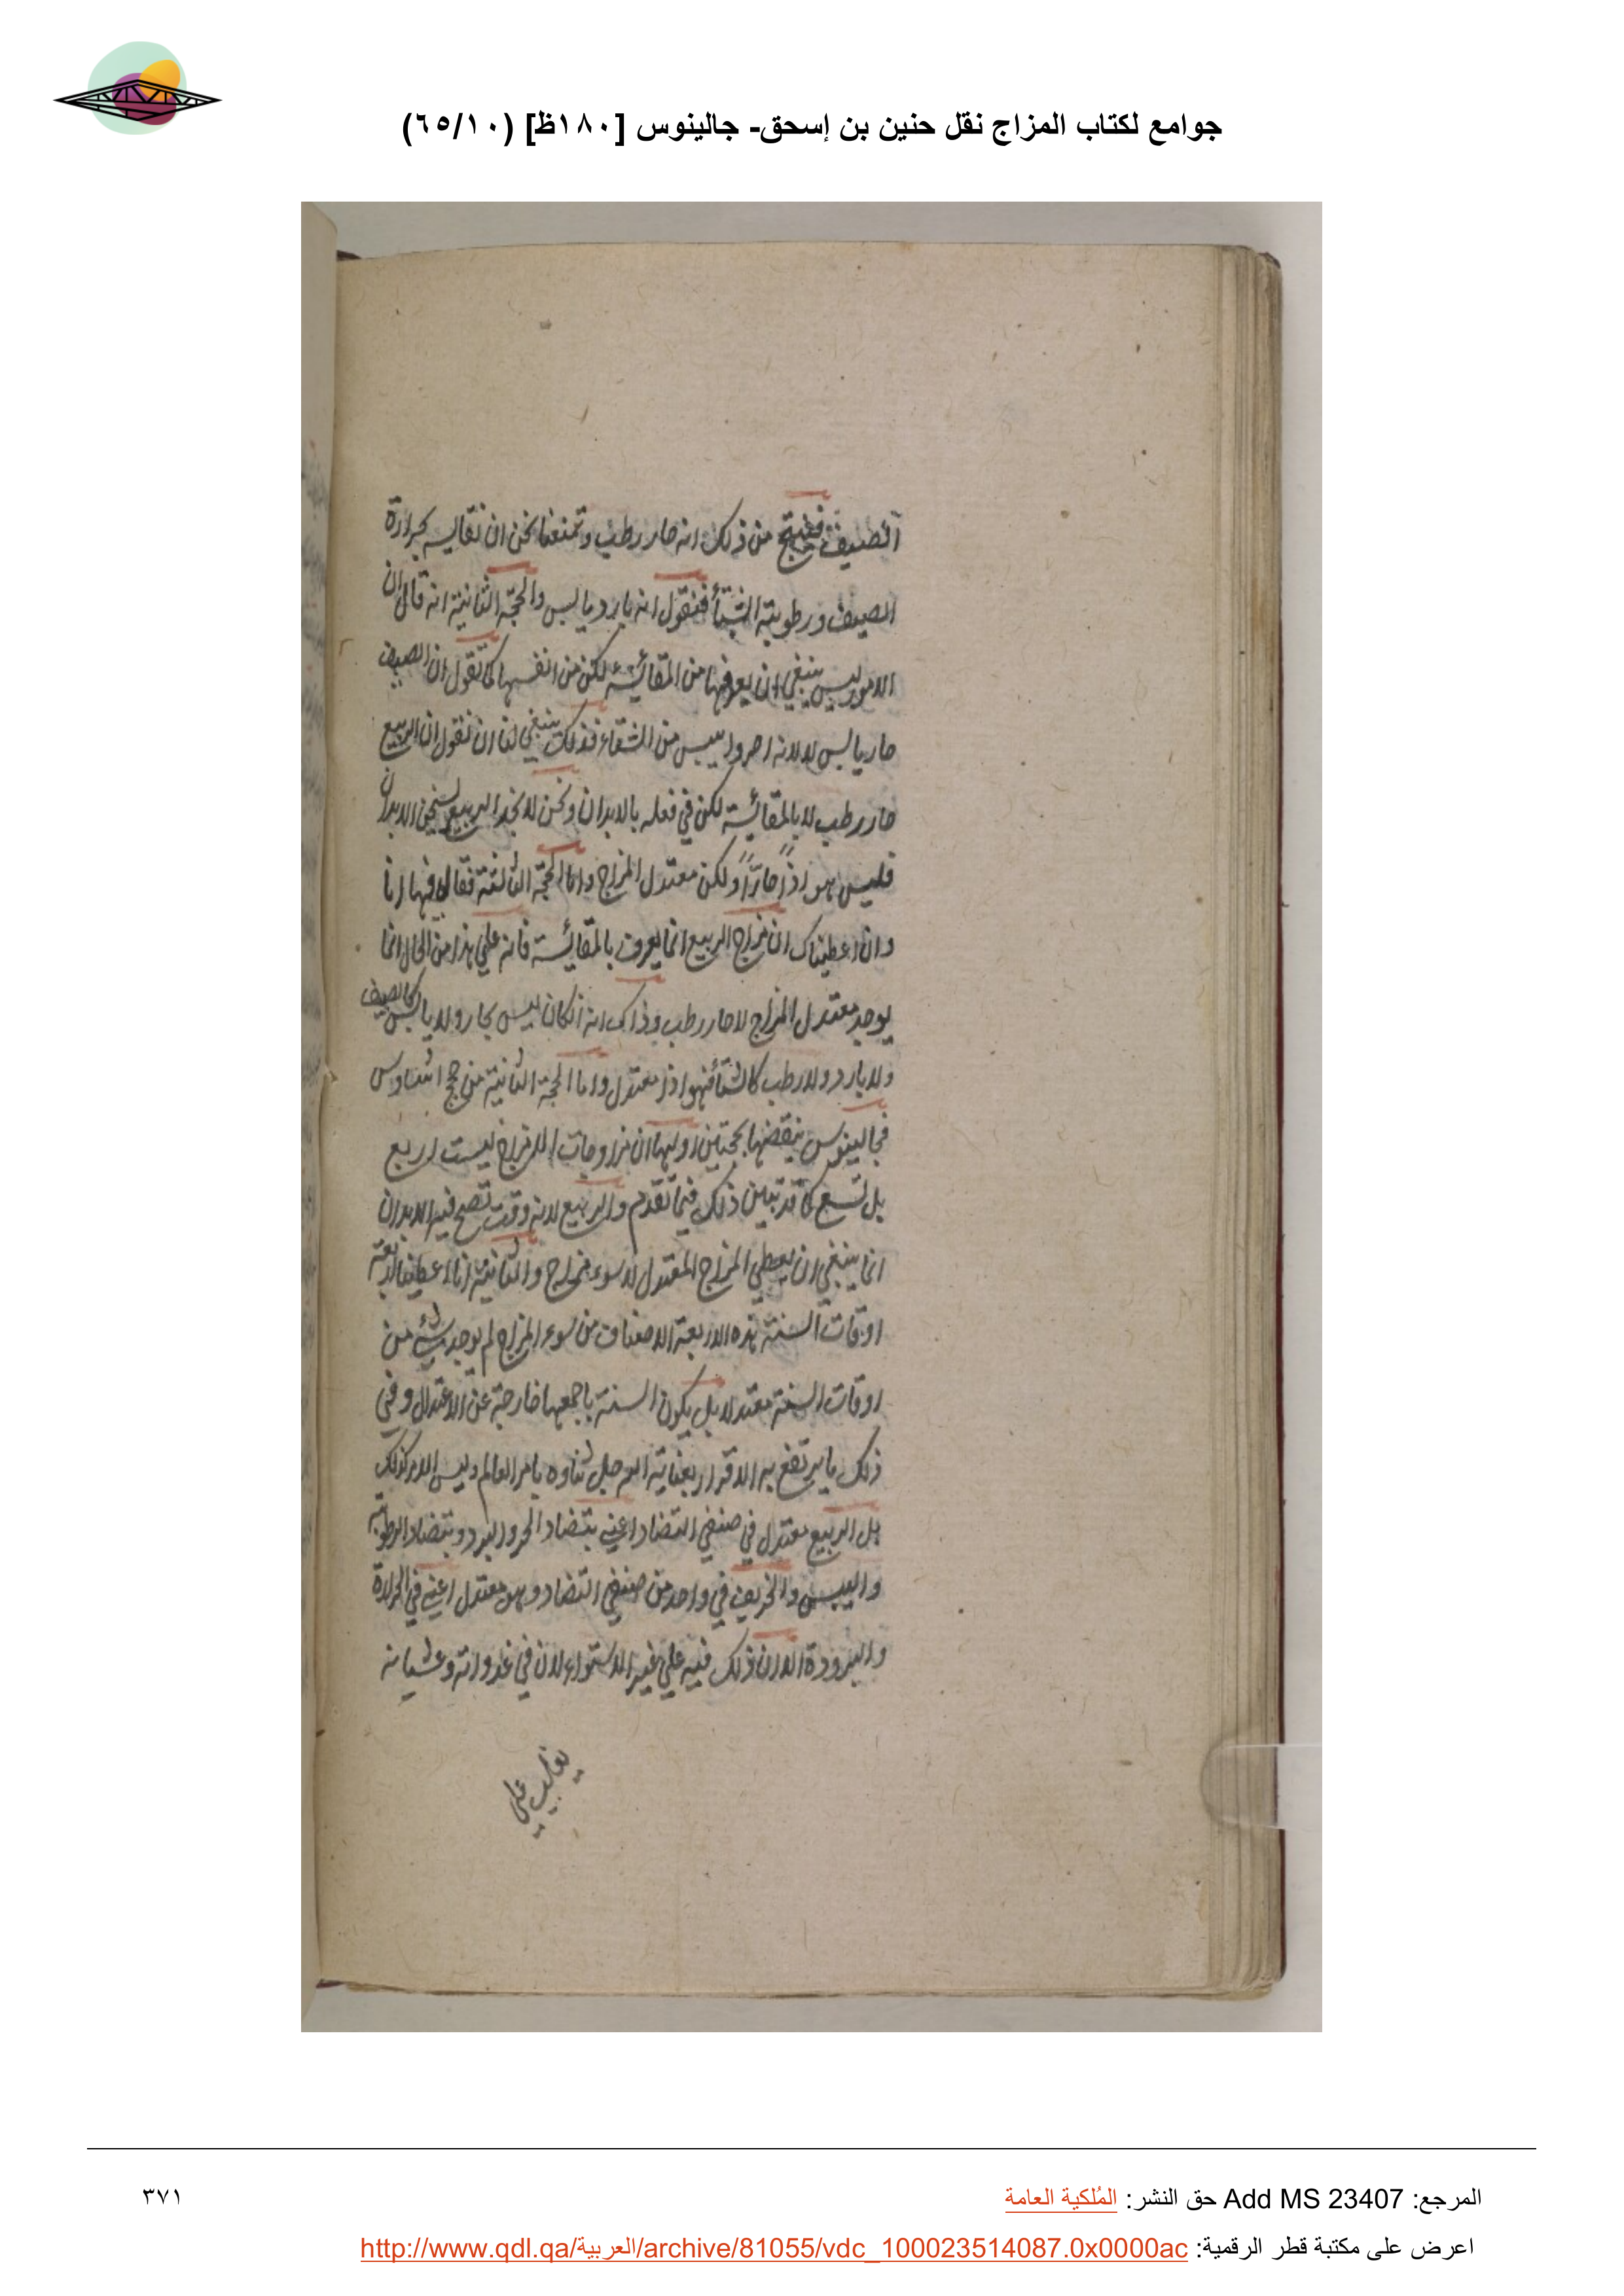 جوامع لكتاب المزاج نقل حنين بن إسحق- جالينوس [١٨٠ظ] (٦٥/١٠)
الصيف فينتج من ذلك انه حار رطب وتمنعنا نحن ان نقايسه بحرارة
الصيف ورطوبة الشتأ فنقول انه بارد يابس والحجة الثانية انه قال ان
الامور ليس ينبغي ان يعرفها من المقائسة لكن من انفسها كما تقول ان الصيف
حار يابس لا لانه احر وايبس من الشتاء فذلك ينبغي لنا ان نقول ان الربيع
حار رطب لا بالمقائسة لكن في فعله بالابدان ونحن لا نجد الربيع يسخن الابدان
فليس هو اذاً حارّاً ولكن معتدل المزاج واما الحجة الثالثة فقال فيها انا
وان اعطيناك ان مزاج الربيع انما يعرف بالمقائسة فانه علي هذا من الحال انما
يوجد معتدل المزاج لا حار رطب وذاك انه اذ كان ليس بحار ولا يابس كالصيف
ولا بارد ولا رطب كالشتأ فهو اذا معتدل واما الحجة الثانية من حجج اثناوس
فجالينوس ينقضها بحجتين اولهما ان مزاوجات المزاج ليست اربع
بل تسع كما قد تبين ذلك فيما تقدم والربيع لانه وقت تصح فيه الابدان
انما ينبغي ان يعطي المزاج المعتدل لا سوء مزاج والثانية انا اعطينا اربعة
اوقات السنة هذه الاربعة الاصناف من سوء المزاج لم يوجد شئ من
اوقات السنة معتدلا بل يكون السنة باجمعها خارجة عن الاعتدال وفي
ذلك ما يرتفع به الاقرار بعناية الله جل ثناوه بامر العالم وليس الامر كذلك
بل الربيع معتدل في صنفي التضاد اعني بتضاد الحر والبرد وبتضاد الرطوبة
واليبس والخريف في واحد من صنفي التضاد وهو معتدل اعني في الحرارة
والبرودة الا ان ذلك فيه علي غير الاستواء لان في غدواته وعشياته
يغلب علي
المرجع: Add MS 23407 حق النشر: المُلكية العامة
٣٧١
اعرض على مكتبة قطر الرقمية: http://www.qdl.qa/العربية/archive/81055/vdc_100023514087.0x0000ac